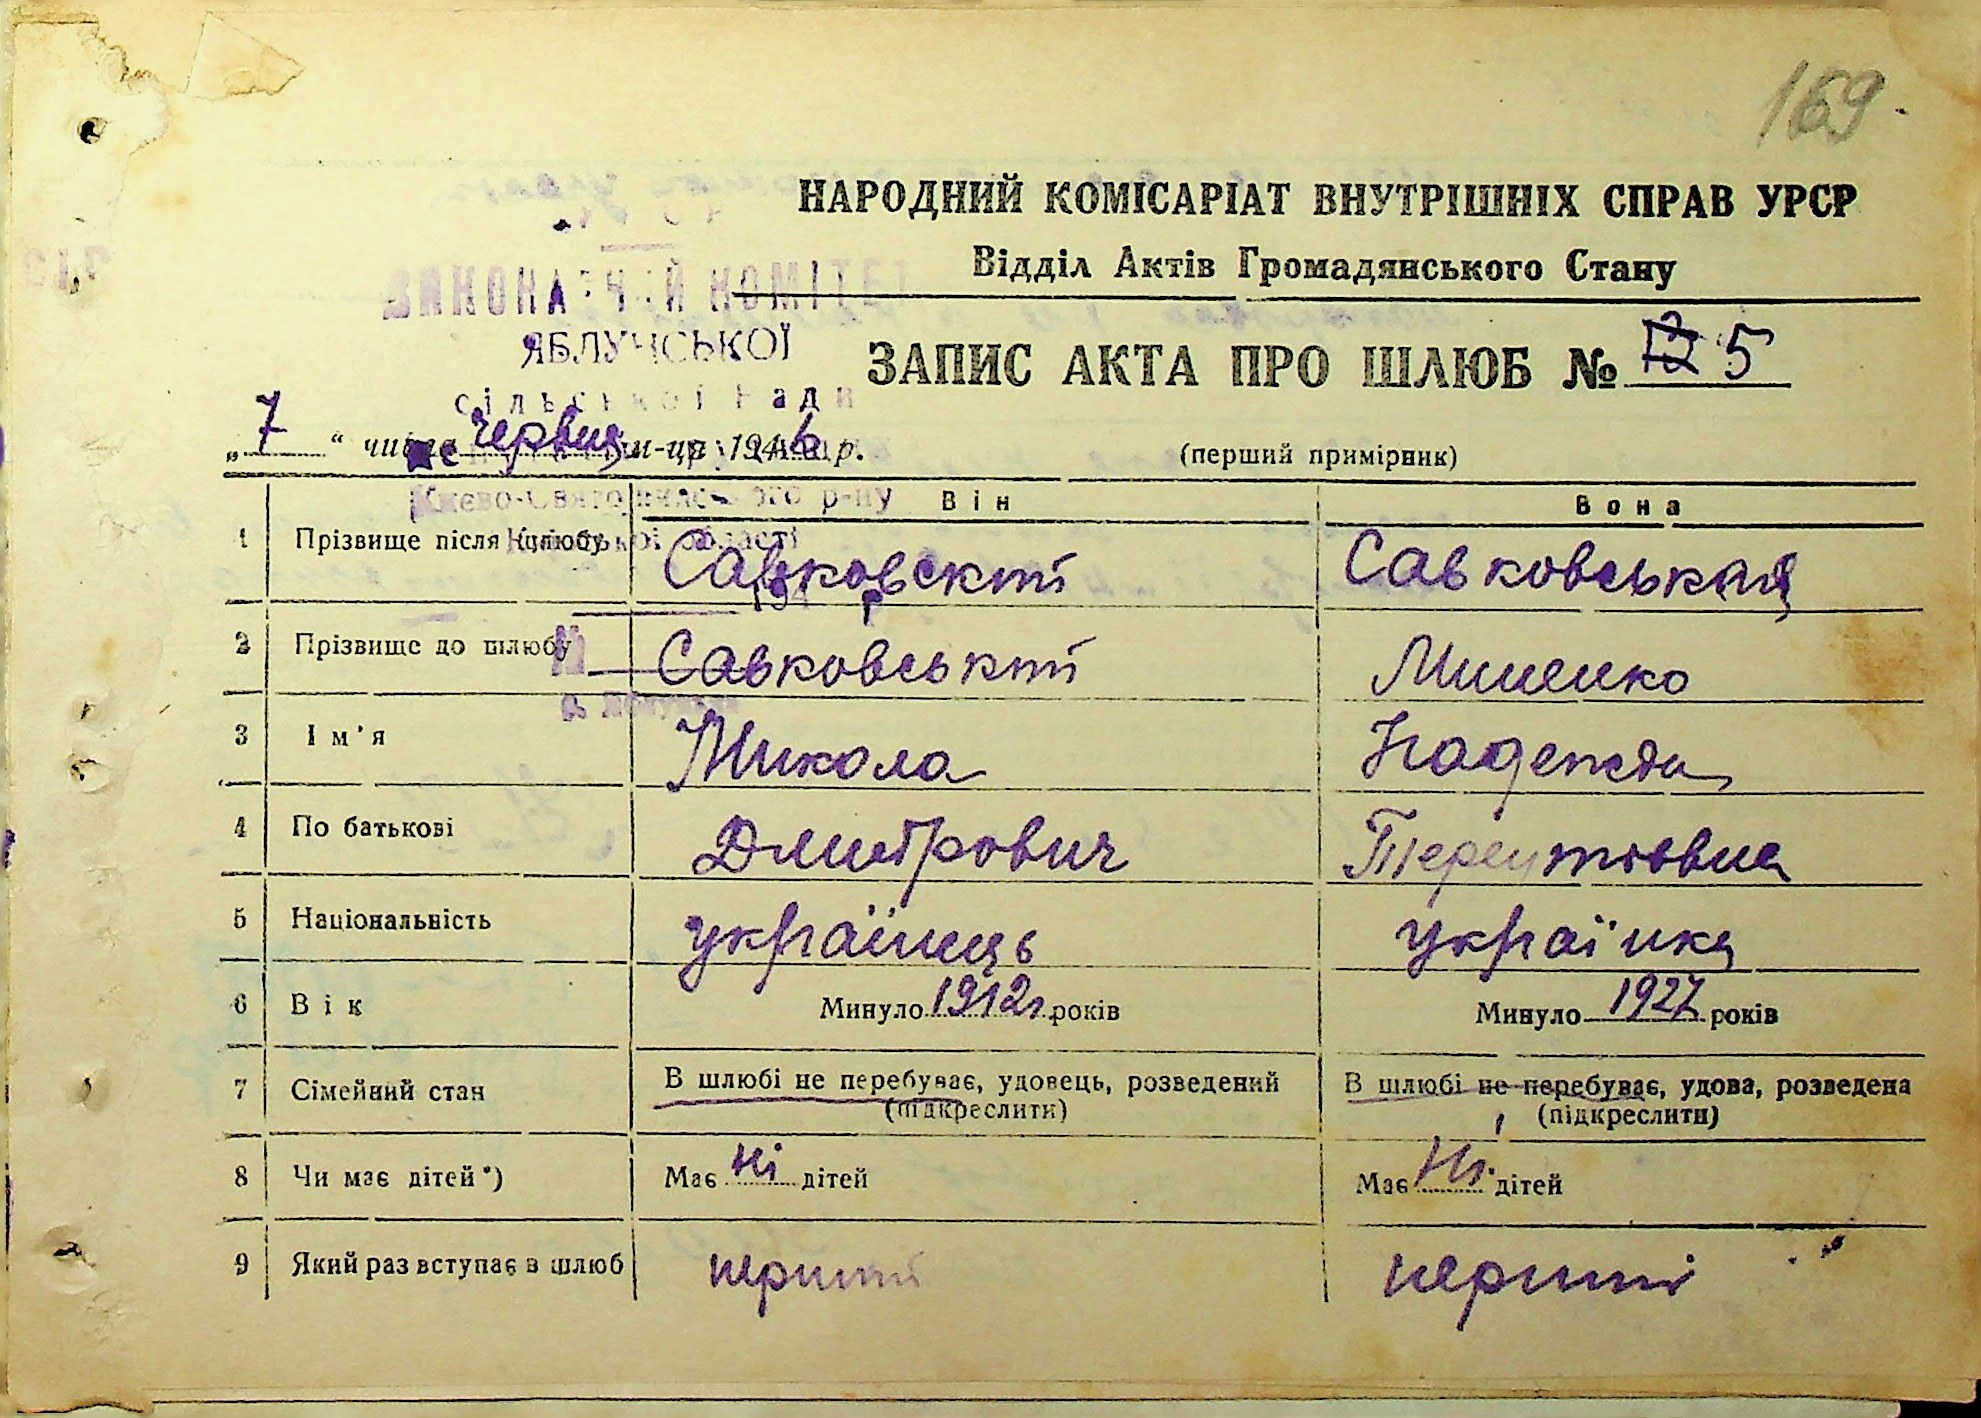 169
НАРОДНИЙ КОМІСАРІАТ ВНУТРІШНІХ СПРАВ УРСР
Відділ Актів Громадянського Стану
ЯБЛУНСЬКОЇ
сільської Ради
Києво-Святошинського р-ну
Київської області
ЗАПИС АКТА ПРО ШЛЮБ № 5
„7“ числа червця м-ця 1946 р. (перший примірник)
Він Вона
1 Прізвище після шлюбу Савковский Савковськая
2 Прізвище до шлюбу Савковський Мишенко
3 Ім'я Микола Надежда
4 По батькові Дмитрович
5 Національність українець українка
6 Вік Минуло 1912 р. років Минуло 1927 років
7 Сімейний стан В шлюбі не перебуває, удовець, розведений В шлюбі не перебуває, удова, розведена
(підкреслити) (підкреслити)
8 Чи має дітей*) Має ні дітей Має ні дітей
9 Який раз вступає в шлюб перший перший